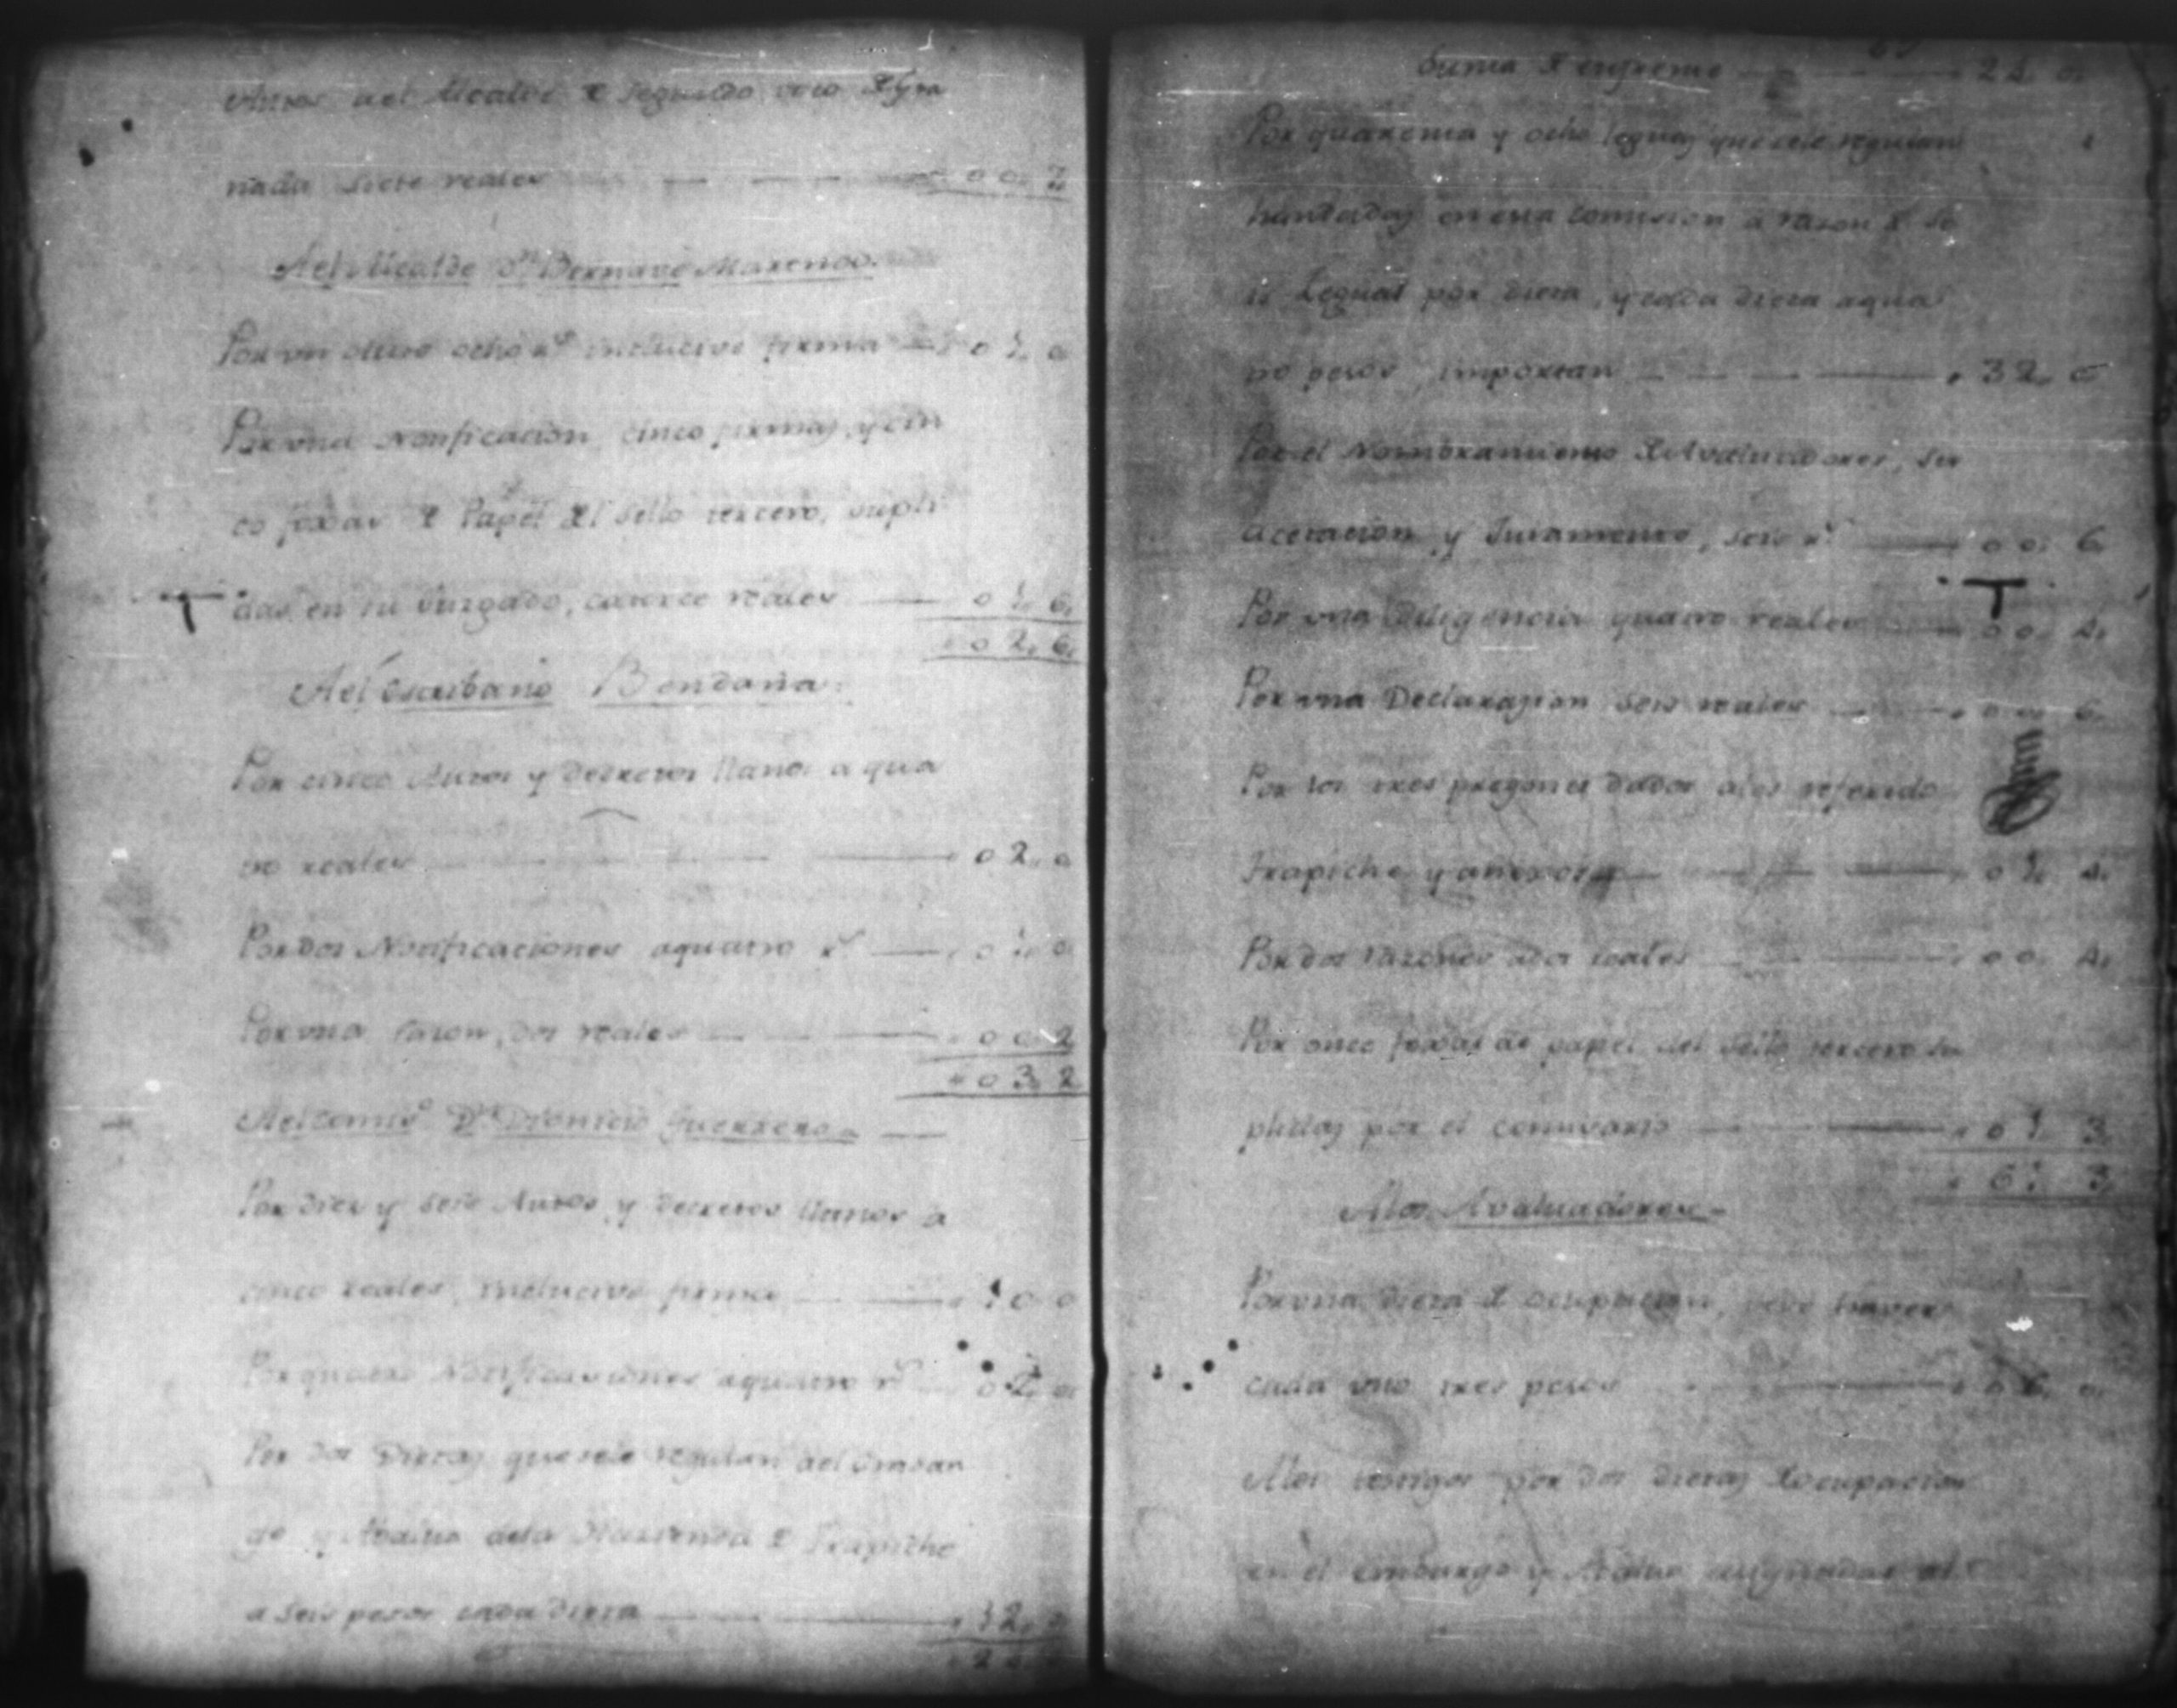 Autos del Alcalde de segundo voto
nada siete reales 00. 7.
Ael Alcalde Dn. Bernave Marenco.
Por un Auto ocho rs. inclucive firma 01. 0
Por una Notificacion, cinco firmas, y cin
co foxas de Papel del Sello tercero, supli
das en su Juzgado, catorce reales 01. 6.
02. 6.
Ael Escribano Bendaña.
Por cinco Autos y decretos llanos a qua
tro reales 02. 0
Por dos Notificaciones aquatro rs. 01. 0
Por una razon, dos reales 00. 2
03. 2
Ael comiso. Dn. Dionicio Guerrero
Por diez y seis Autos, y decretos llanos a
cinco reales, inclucive firma 10. 0
Por quatro Notificaciones aquatro rs. 02. 0.
Por dos Dietas que se le regulan del Embar
go y Abaluo dela Hazienda de Trapiche
a seis pesos cada dieta 12. 0
24.
Suma de enfrente 24. 0.
Por quarenta y ocho leguas que se le regulan
handadas en esta comision a razon de se
is Leguas por dieta, y cada dieta aqua
tro pesos, importan 32. 0
Por el Nombramiento de Avaluadores, su
acetacion, y Juramento, seis rs. 00. 6.
Por una Diligencia quatro reales 00. 4.
Por una Declarazion seis reales 00. 6.
Por los tres pregones dados alos referido
Trapiche y anexos 01. 4.
Por dos razones ados reales 00. 4.
Por once foxas de papel del Sello tercero su
plidas por el comisario 01. 3.
61. 3.
Alos Avaluadores
Por una dieta de ocupacion, deve haver
cada uno tres pesos 06. 0.
Alos testigos por dos dietas de ocupacion
en el embargo y Abaluo asignadas al